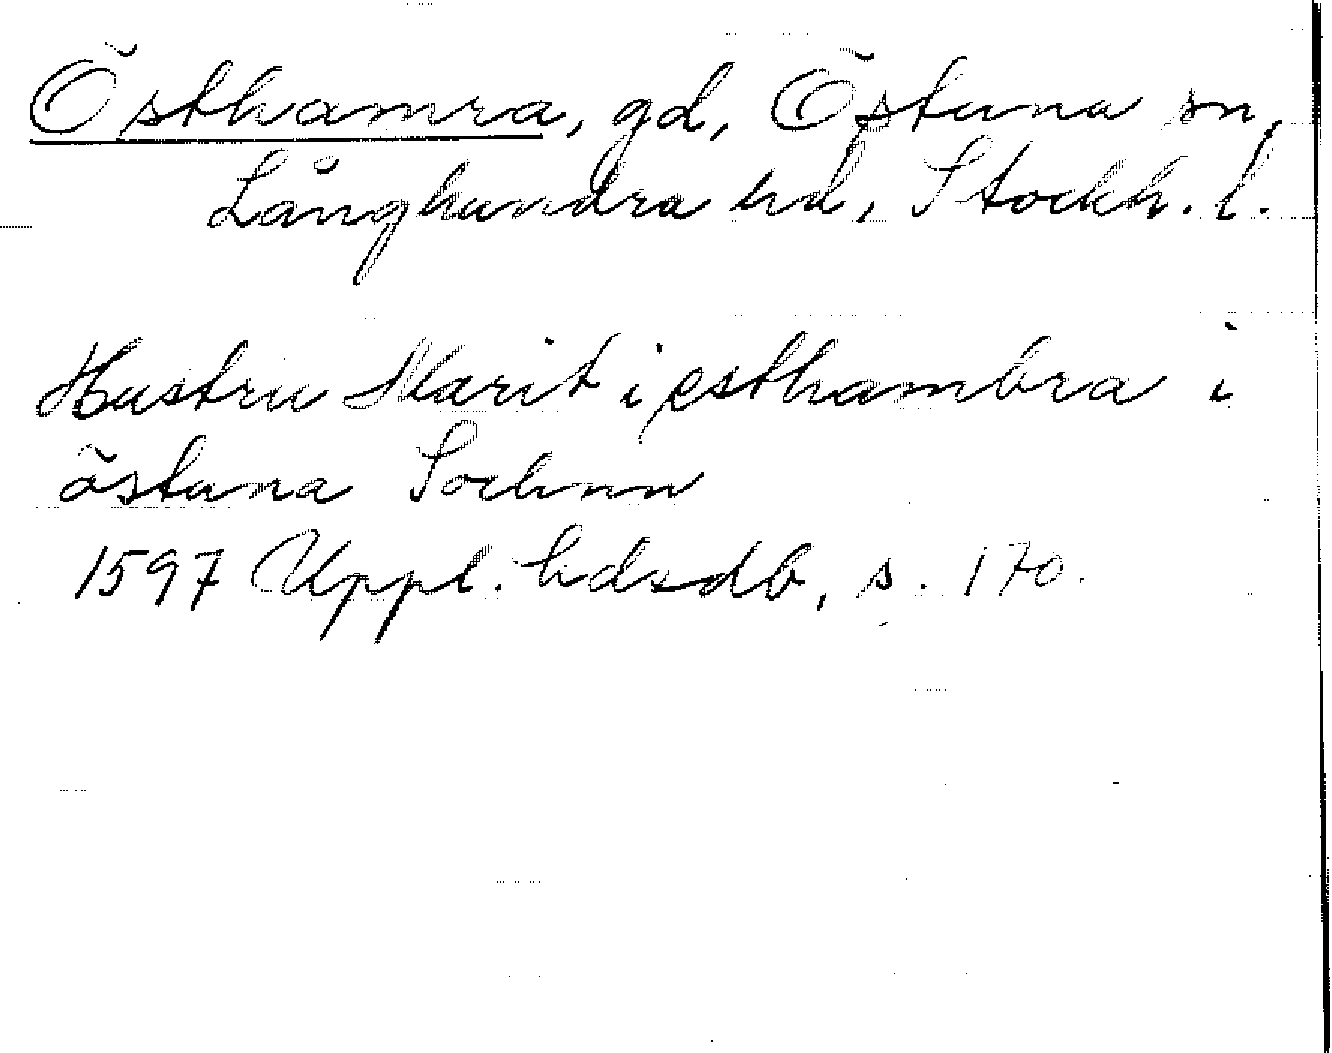 Östhamra, gd, Östuna sn,
Långhundra hd, Stockh. l.
Hustru Marit i østhambra i
östuna Sochnn
1597 Uppl. hdsdb, s. 170.